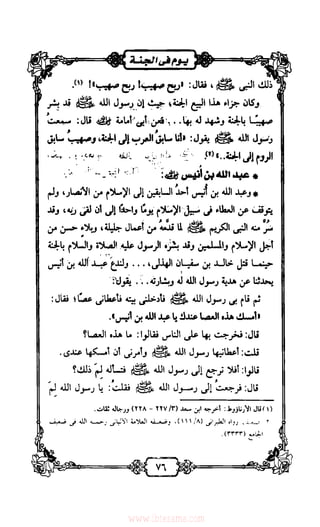 يوم في الجنة
ذلك النبي ﷺ ، فقال: «ربح صهيب! ربح صهيب!»(١).
وكان جزاء هذا البيع الجنة؛ حيث إن رسول الله ﷺ قد بشر
صهيبًا بالجنة وشهد له بها... فعن أبي أمامة قال: سمعت
رسول الله ﷺ يقول: «أنا سابق العرب إلى الجنة، وصهيب سابق
الروم إلى الجنة..»(٢)
* عبد الله بن أنيس
* وعبد الله بن أنيس أحد السابقين إلى الإسلام من الأنصار، ولم
يتوقف عن العطاء في سبيل الإسلام يومًا واحدًا إلى أن لقي ربه، وقد
أثنى عليه النبي الكريم ﷺ لما قدمه من أعمال جليلة، وبلاء حسن من
أجل الإسلام والمسلمين وقد بشره الرسول عليه الصلاة والسلام بالجنة
حينما قتل خالد بن سفيان الهذلي... ولندع عبد الله بن أنيس
يحدثنا عن هدية رسول الله له وبشارته... يقول:
ثم قام بي رسول الله ﷺ فأدخلني بيته فأعطاني عصًا؛ فقال:
«أمسك هذه العصا عندك يا عبد الله بن أنيس».
قال: فخرجت بها على الناس فقالوا: ما هذه العصا؟
قلت: أعطانيها رسول الله ﷺ وأمرني أن أمسكها عندي.
قالوا: أفلا ترجع إلى رسول الله ﷺ فتسأله لِمَ ذلك؟
قال: فرجعت إلى رسول الله ﷺ فقلت: يا رسول الله لِمَ
(١) قال الأرناؤوط: أخرجه ابن سعد (٣/ ٢٢٧ - ٢٢٨) ورجاله ثقات.
رواه الطبراني (٨/ ١١١)، وضعفه العلامة الألباني رحمه الله في ضعيف
الجامع (٣٣٣٣).
٧٦